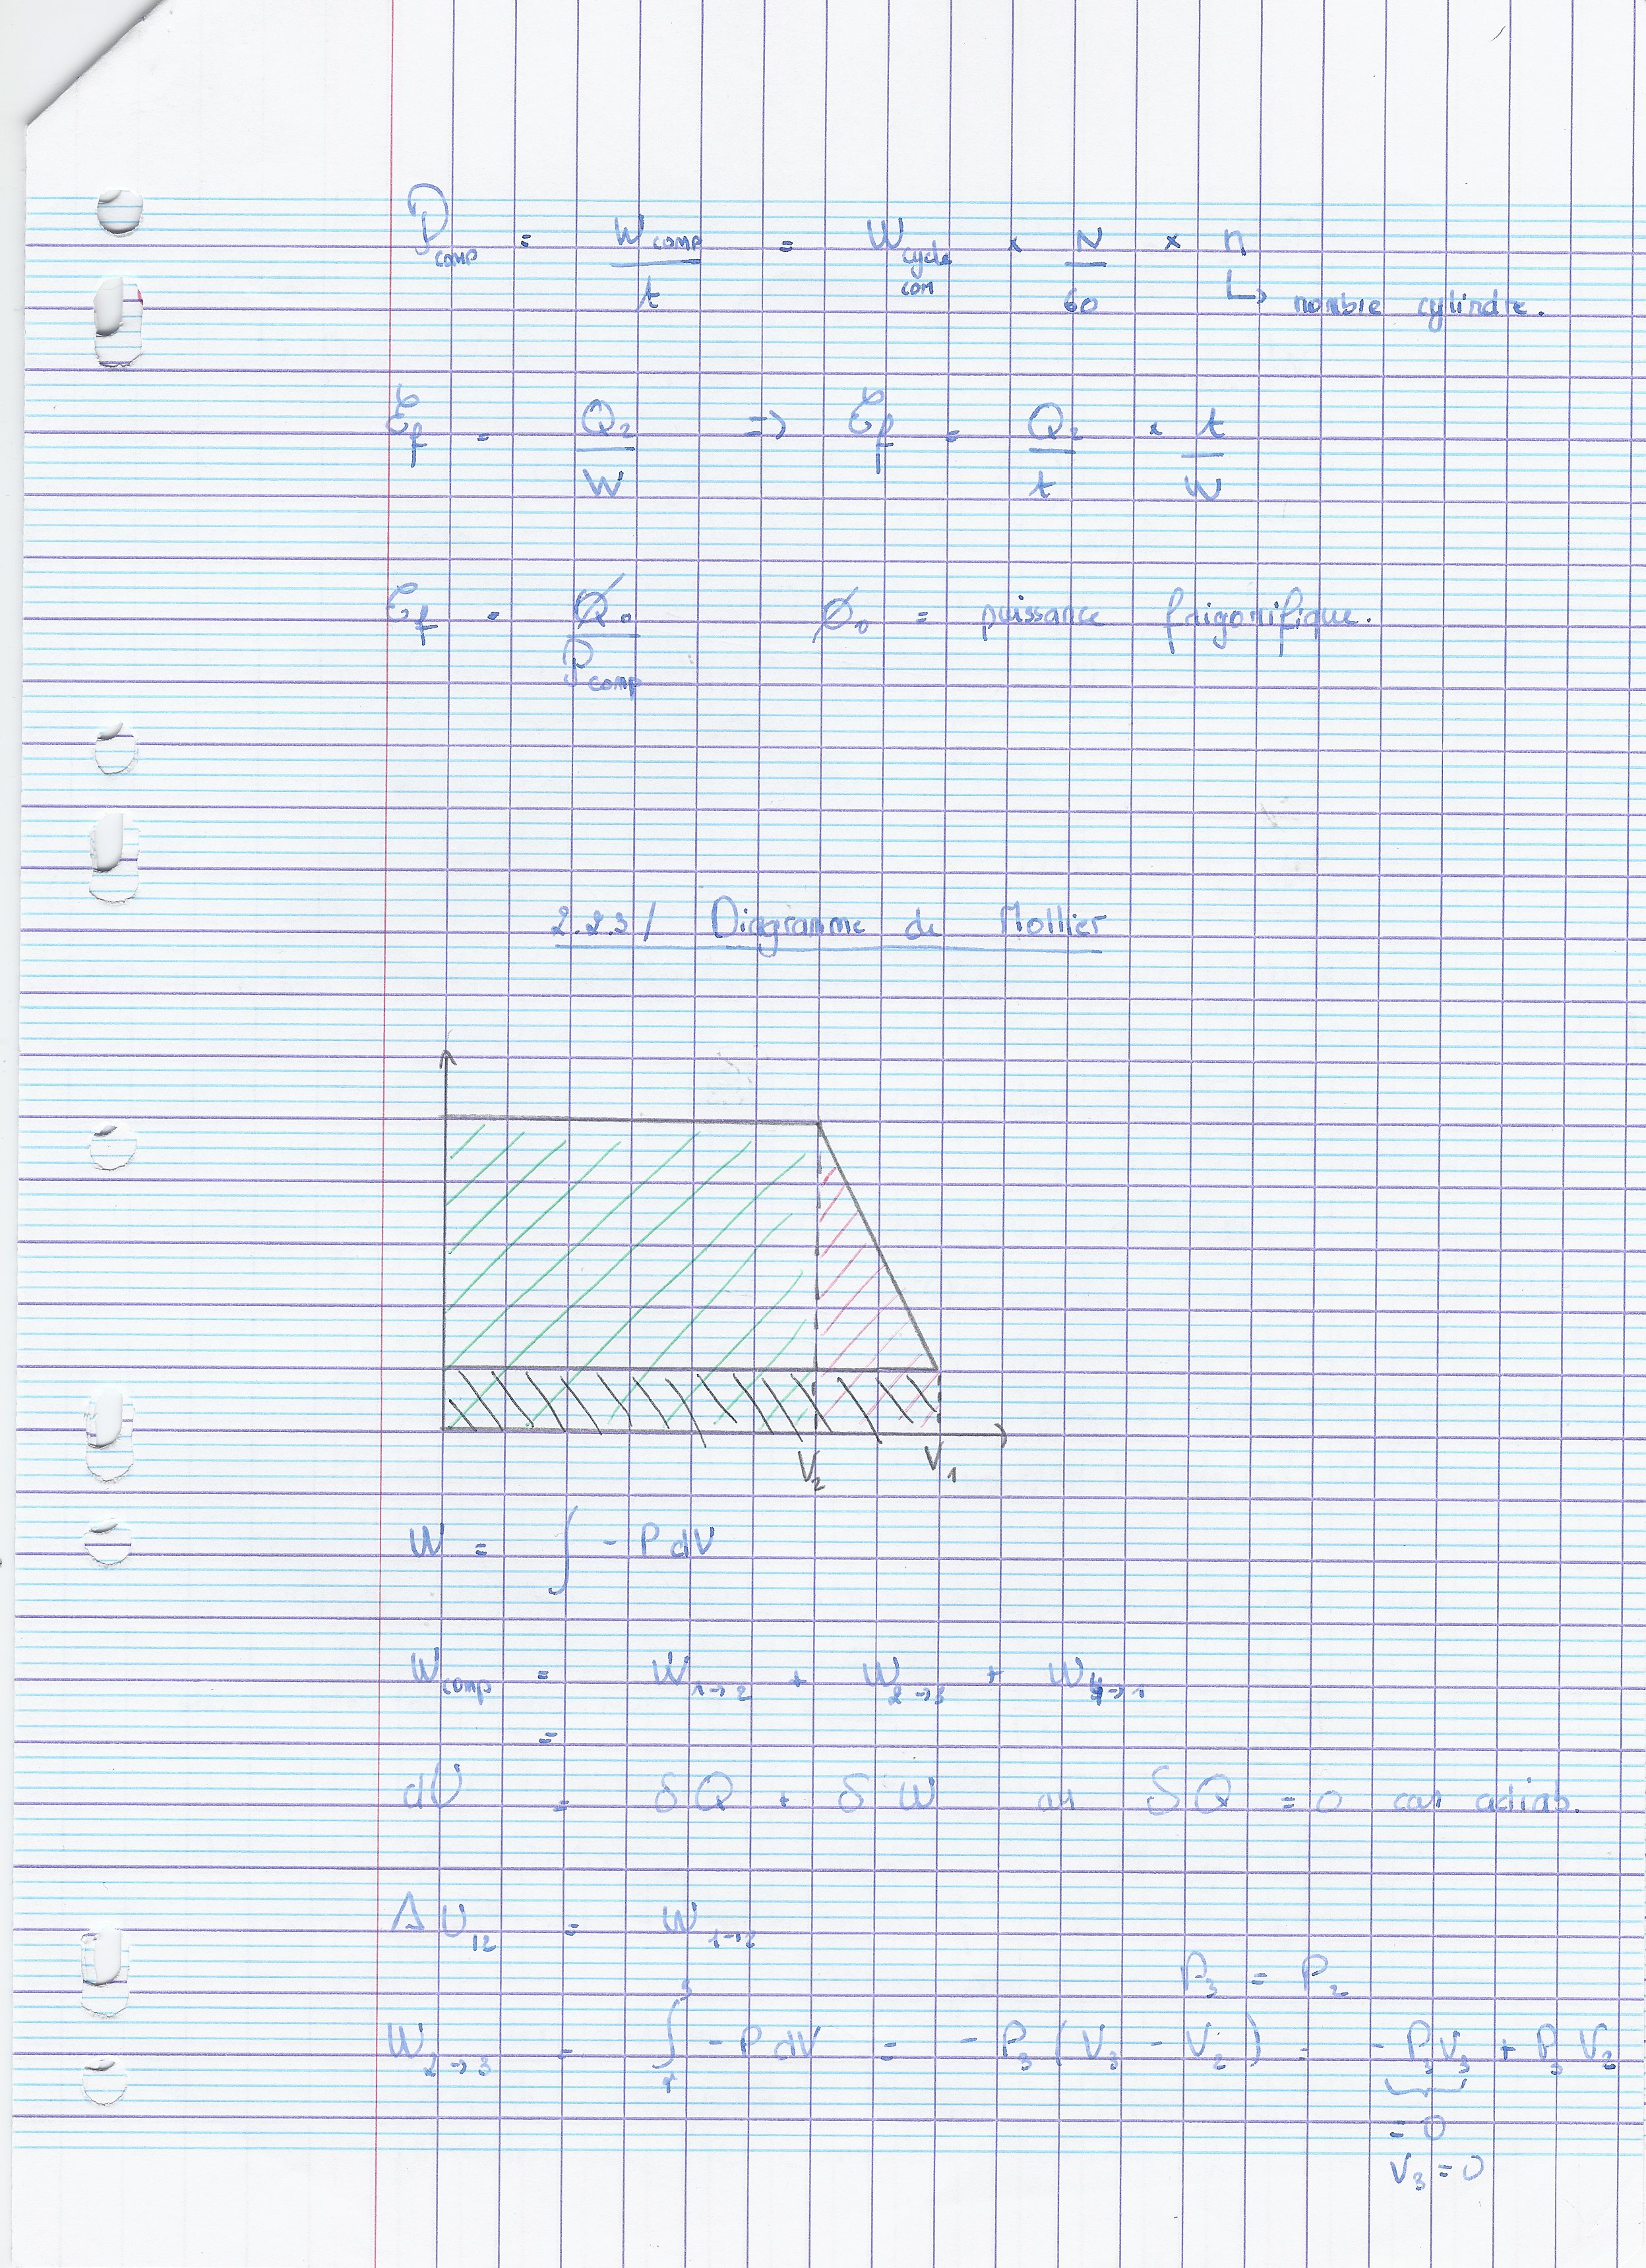 P_comp = W_comp / t = W_cycle com × N / 60 × n
↳ nombre cylindre.
ε_f = Q_2 / W => ε_f = Q_2 / t × t / W
ε_f = Φ_0 / P_comp Φ_0 = puissance frigorifique.
2.2.3/ Diagramme de Mollier
V_2 V_1
W = ∫ - P dV
W_comp = W_1→2 + W_2→3 + W_4→1
=
dU = δQ + δW or δQ = 0 car adiab.
ΔU_12 = W_1→2
P_3 = P_2
W_2→3 = ∫ - P dV = - P_3 (V_3 - V_2) = - P_3 V_3 + P_3 V_2
= 0
V_3 = 0